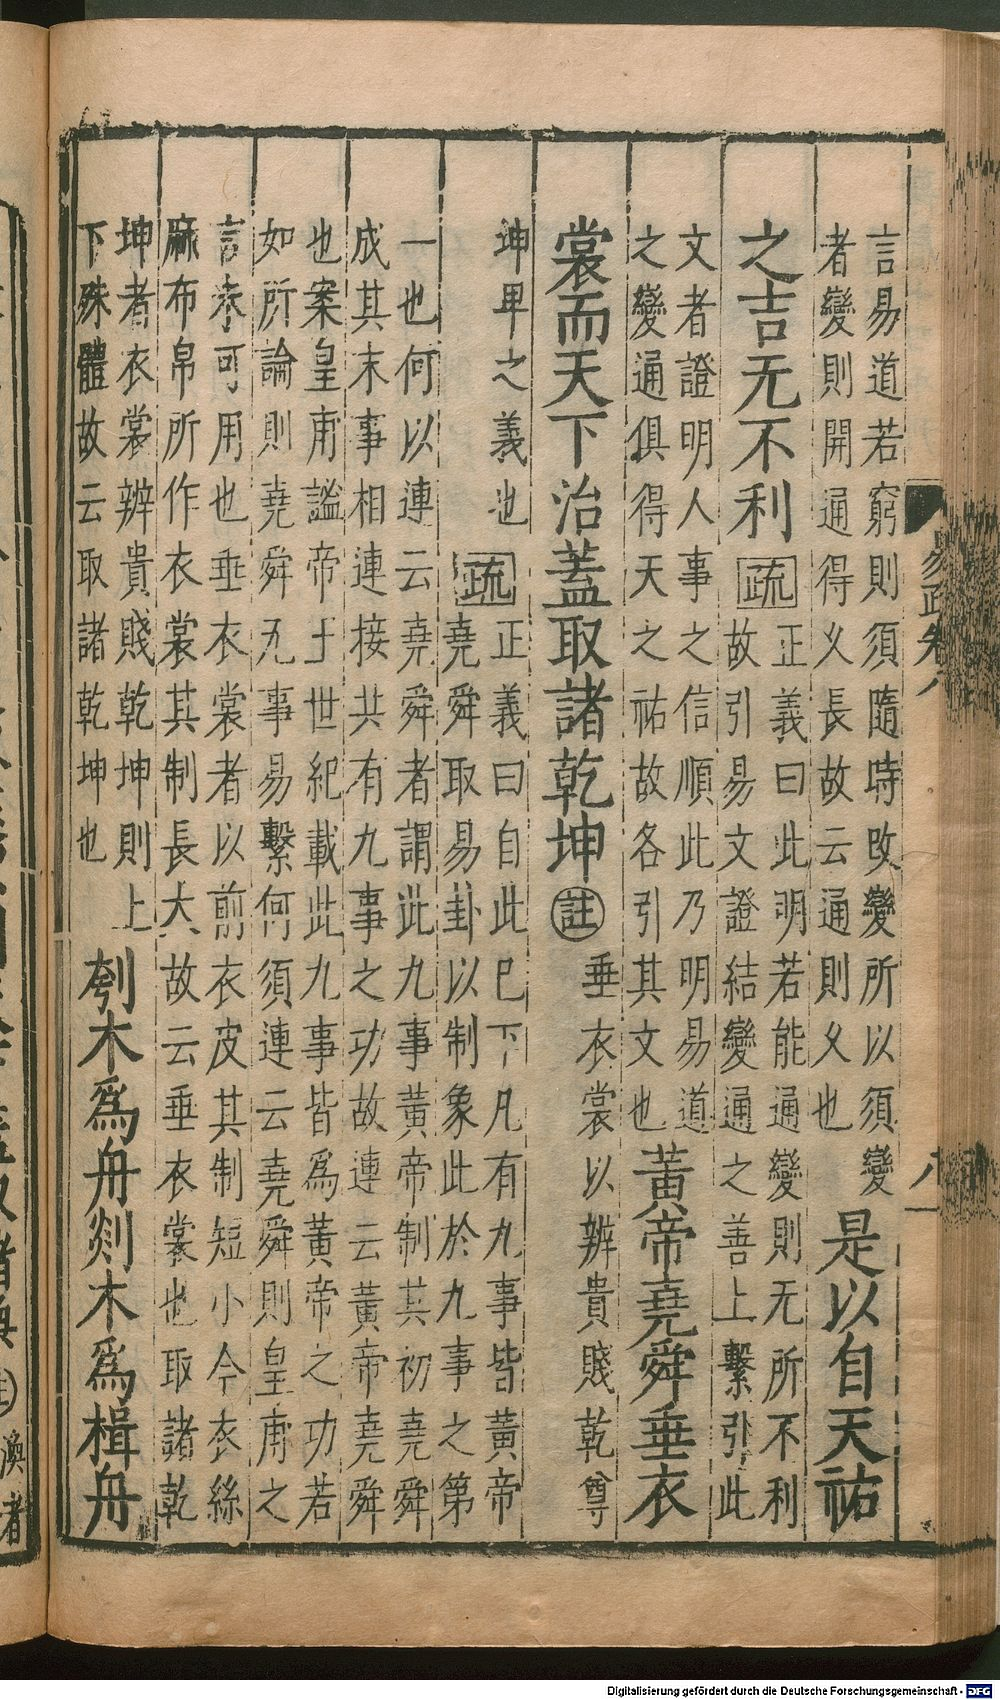 言易道若窮則須隨時改變所以須變
者變則開通得乆長故云通則乆也
是以自天祐
之吉无不利
疏
正義曰此明若能通變則无所不利
故引易文證結變通之善上繫引此
文者證明人事之信順此乃明易道
之變通俱得天之祐故各引其文也
黃帝堯舜垂衣
裳而天下治蓋取諸乾坤
註
垂衣裳以辨貴賤乾尊
坤卑之義也
疏
正義曰自此已下凡有九事皆黃帝
堯舜取易卦以制象此於九事之第
一也何以連云堯舜者謂此九事黃帝制其初堯舜
成其末事相連接共有九事之功故連云黃帝堯舜
也案皇甫謐帝王世紀載此九事皆爲黃帝之功若
如所論則堯舜无事易繫何須連云堯舜則皇甫之
言未可用也垂衣裳者以前衣皮其制短小今衣絲
麻布帛所作衣裳其制長大故云垂衣裳也取諸乾
坤者衣裳辨貴賤乾坤則上
下殊體故云取諸乾坤也
刳木爲舟剡木爲楫舟
易疏卷八
八
渙者
Digitalisierung gefördert durch die Deutsche Forschungsgemeinschaft - DFG